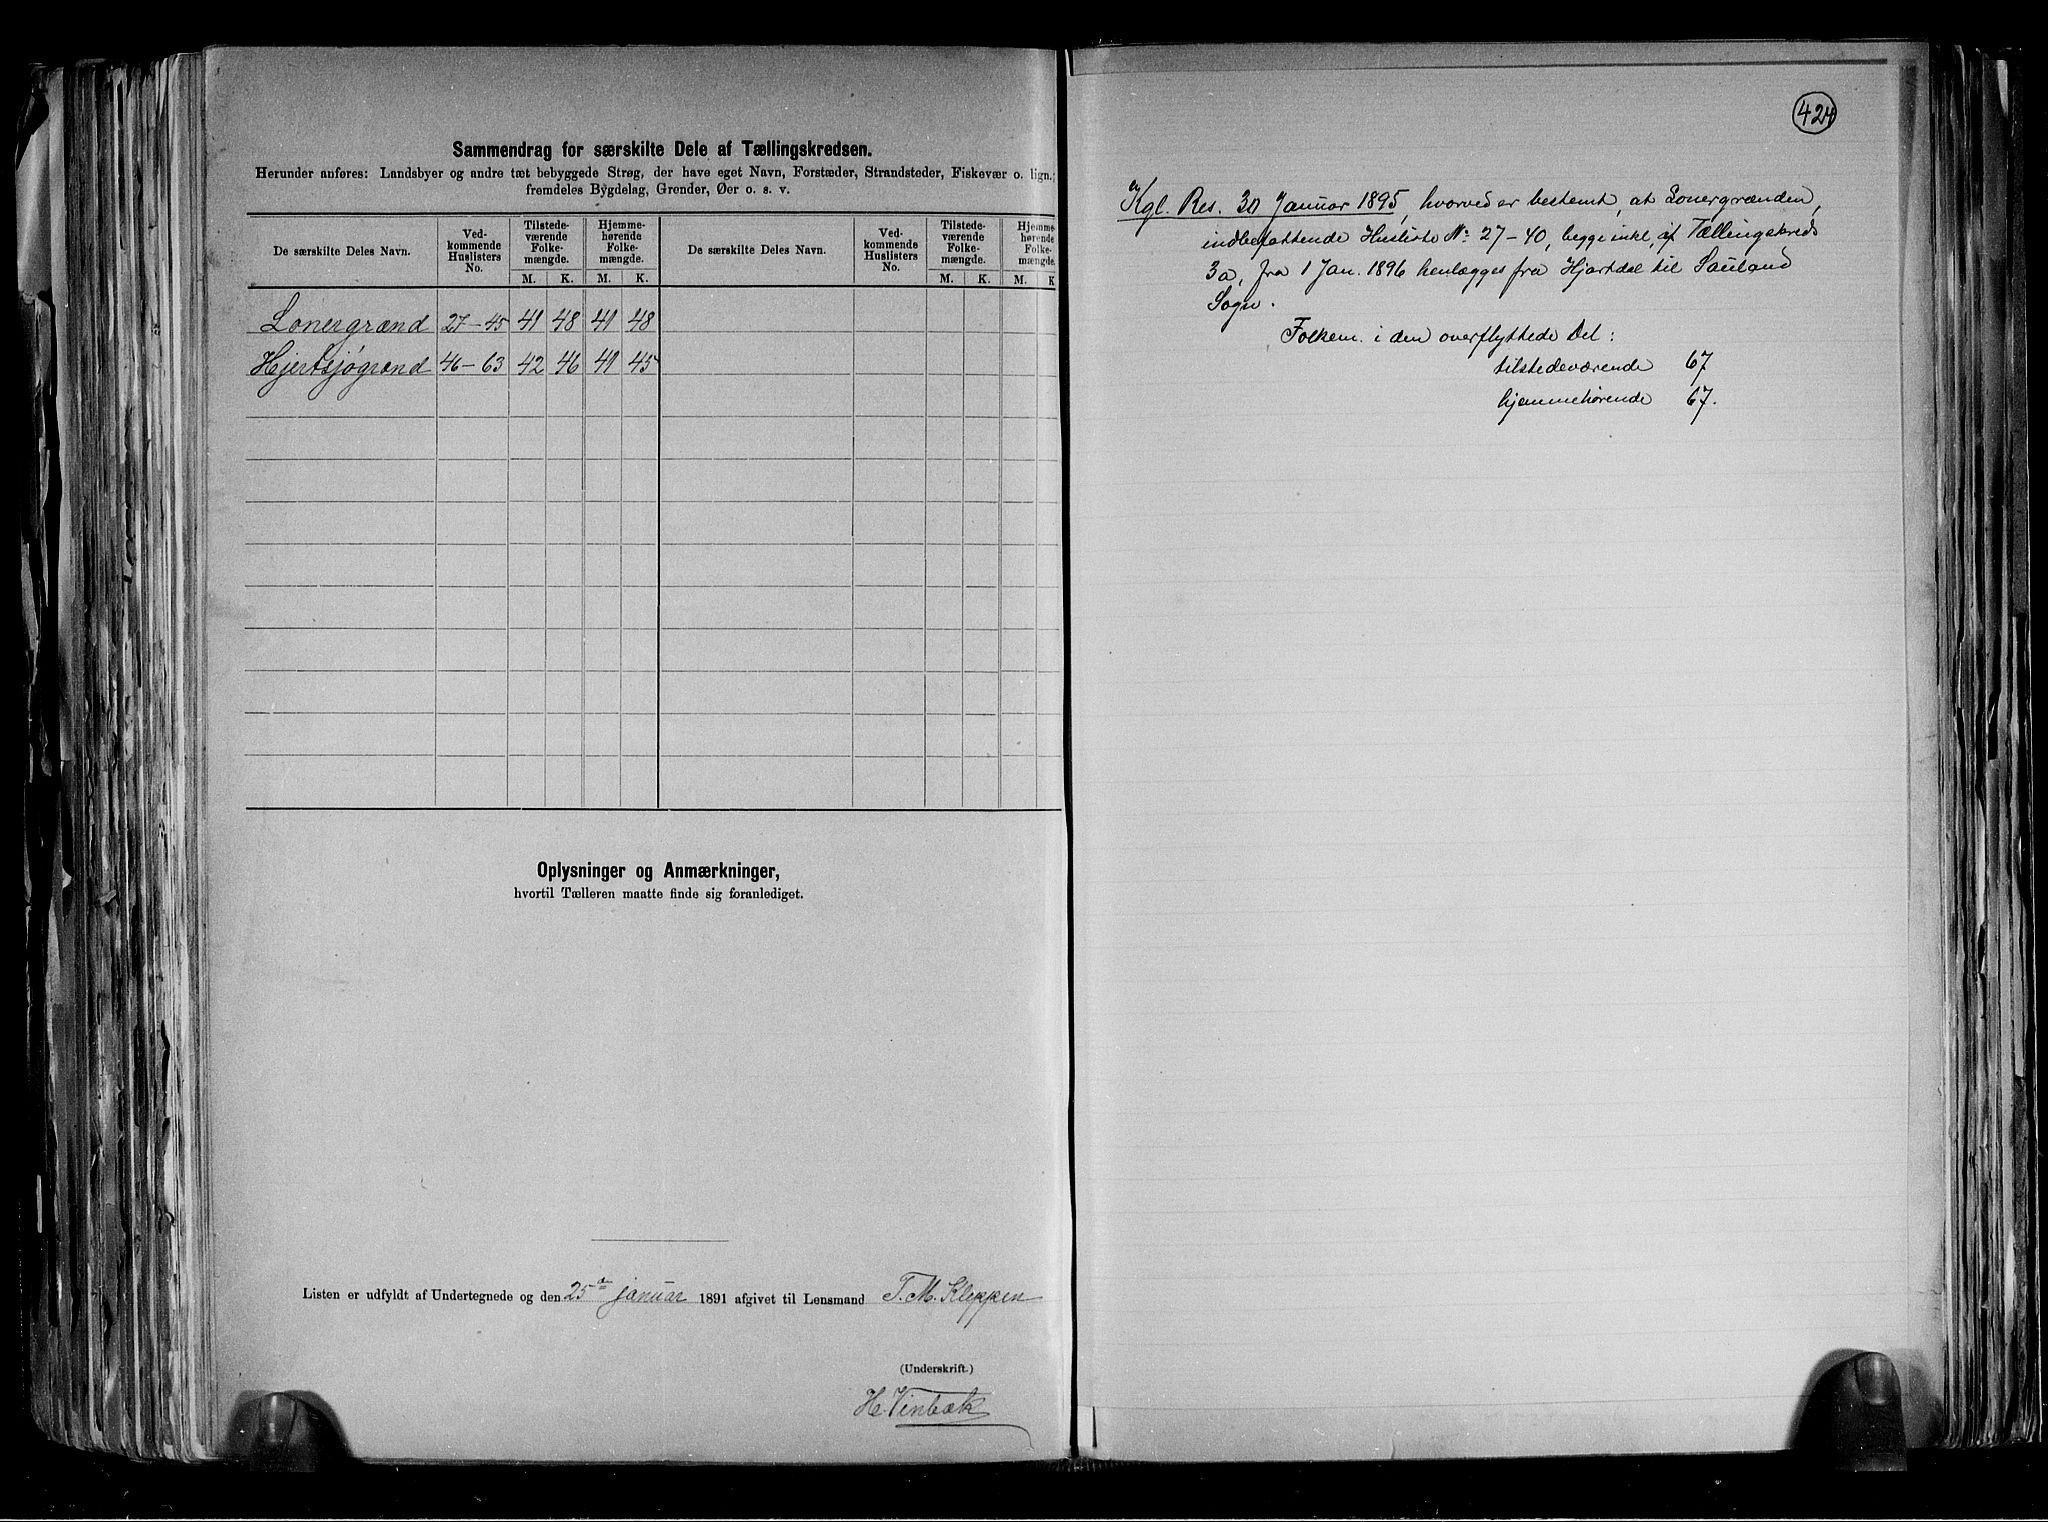 Sammendrag for særskilte Dele af Tællingskredsen.
Herunder anføres: Landsbyer og andre tæt bebyggede Strøg, der have eget Navn, Forstæder, Strandsteder, Fiskevær o. lign.;
fremdeles Bygdelag, Grender, Øer o. s. v.
De særskilte Deles Navn. Ved-kommende Huslisters No. Tilstede-værende Folke-mængde. Hjemme-hørende Folke-mængde. De særskilte Deles Navn. Ved-kommende Huslisters No. Tilstede-værende Folke-mængde. Hjemme-hørende Folke-mængde.
M. K. M. K. M. K. M. K
Lonergrænd 27-45 41 48 41 48
Hjertsjøgrænd 46-63 42 46 41 45
Oplysninger og Anmærkninger,
hvortil Tælleren maatte finde sig foranlediget.
Listen er udfyldt af Undertegnede og den 25de januar 1891 afgivet til Lensmand T. M. Kleppen
(Underskrift.)
H. Vinbæk
424
Kgl. Res. 30 Januar 1895, hvorved er bestemt, at Lonergrænden,
indbefattende Husliste No 27-40, begge inkl. af Tællingskreds
3a, fra 1 Jan. 1896 henlægges fra Hjartdal til Sauland
Sogn.
Folkem. i den overflyttede Del:
tilstedeværende 67
hjemmehørende 67.